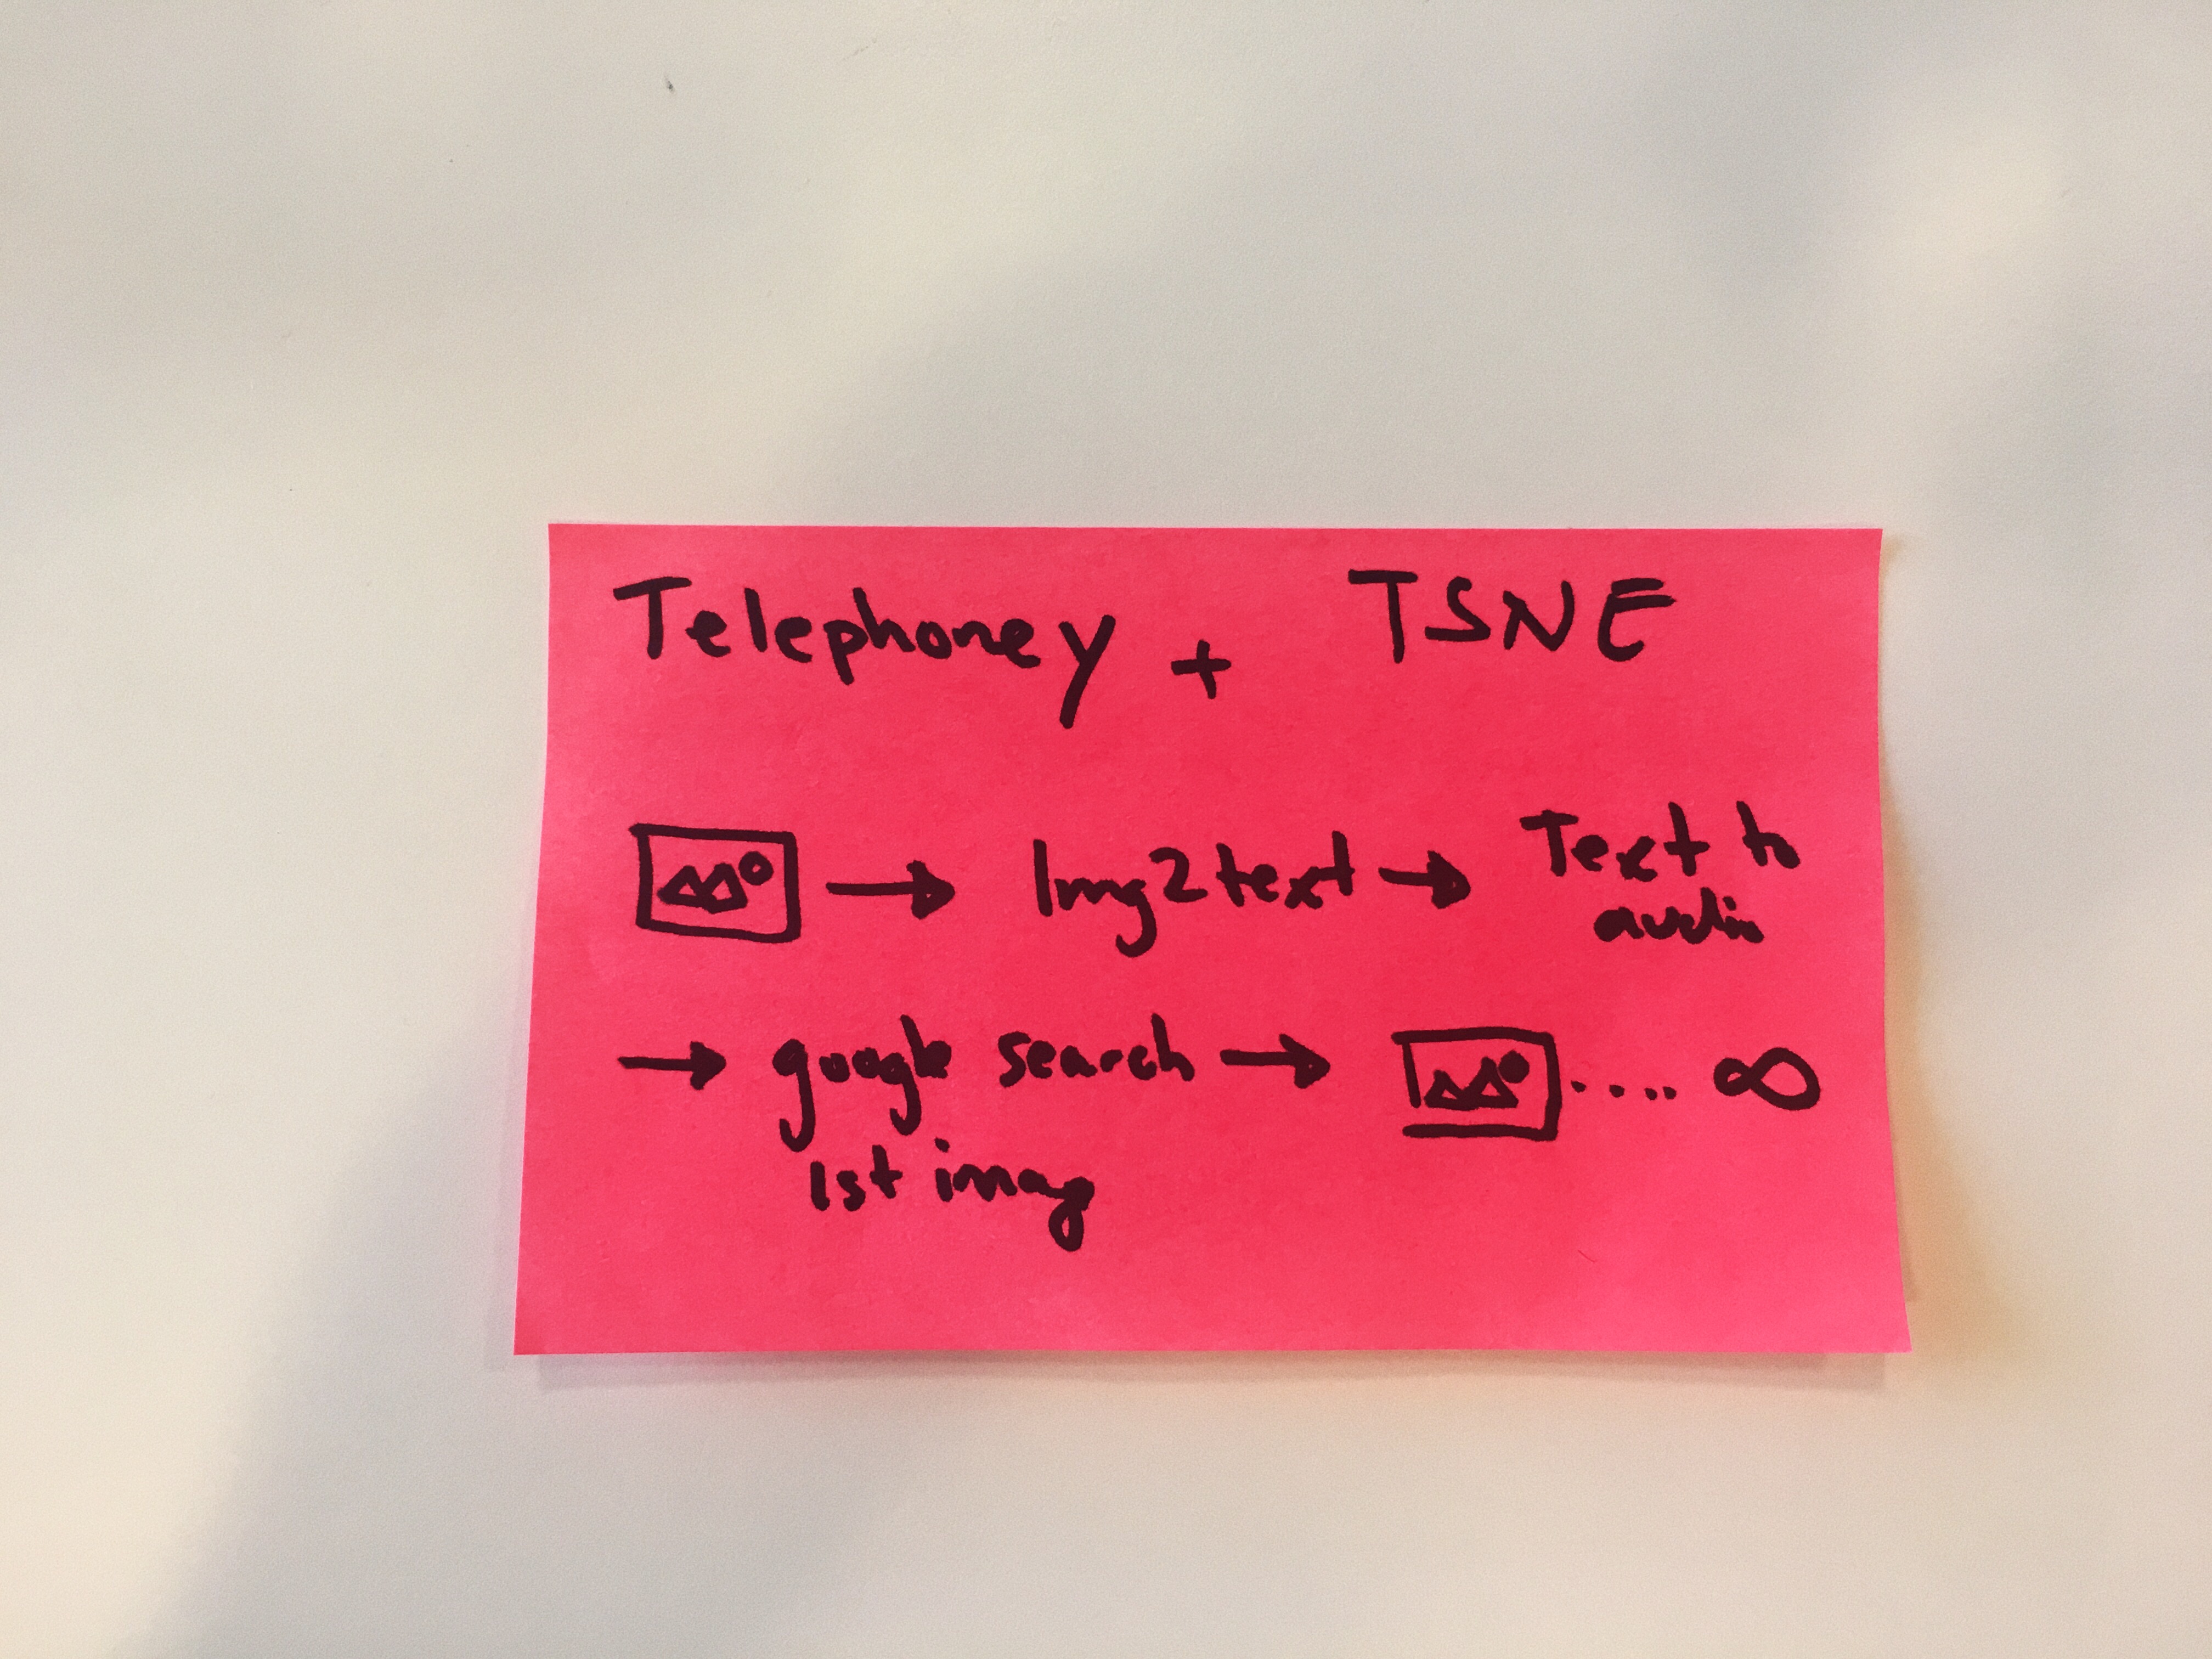 Telephoney + TSNE
→ Img2text → Text to
audio
→ google search → .... ∞
1st imag